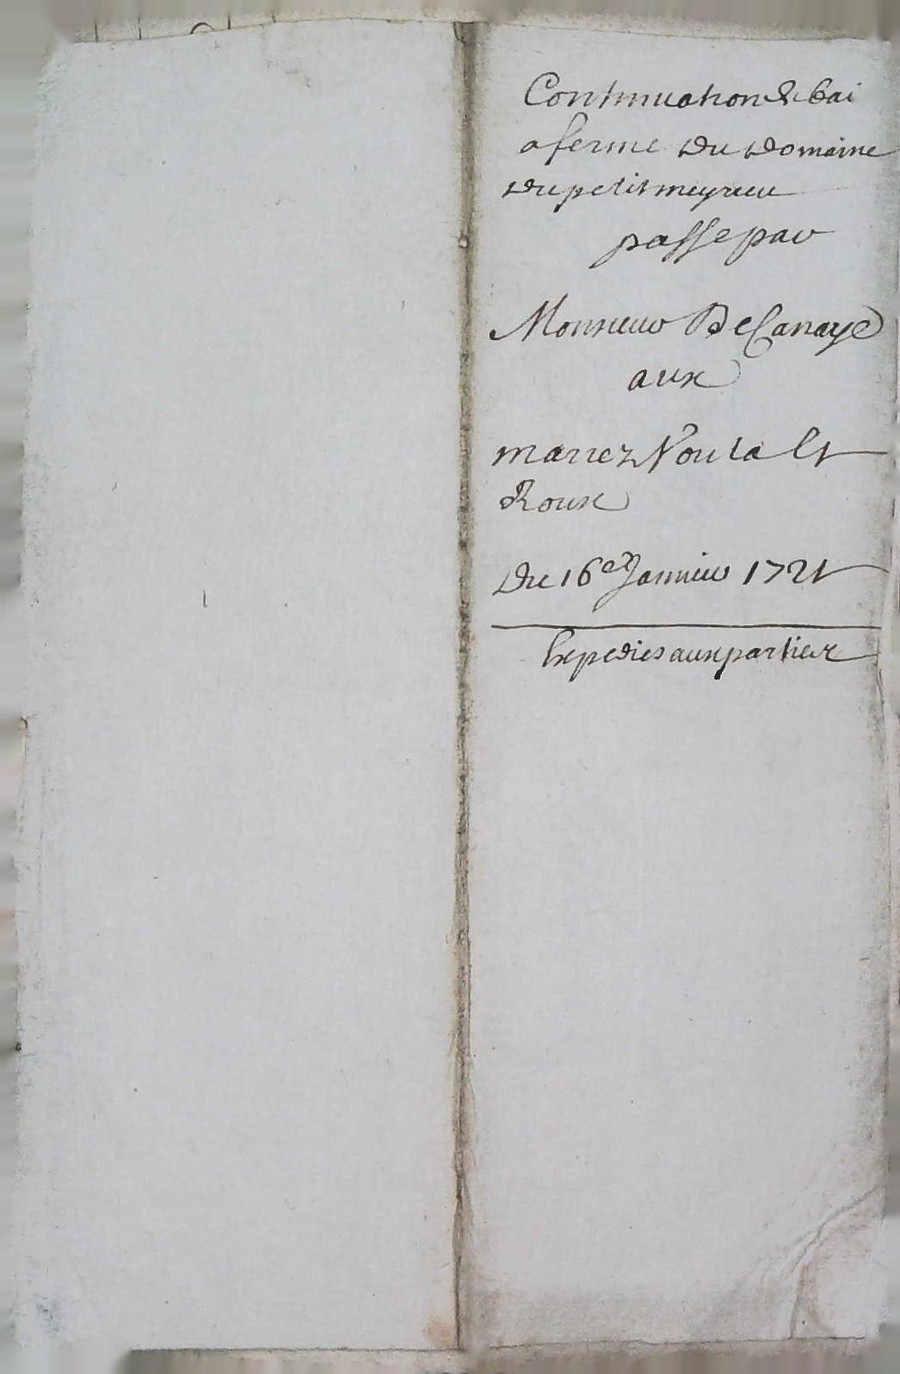 Continuation de bai
a ferme du domaine
du petit meyrieu
passe par
Monsieur De Canaye
aux
mariez Nouta et
Roux
Du 16e Janvier 1721
Expedies aux parties